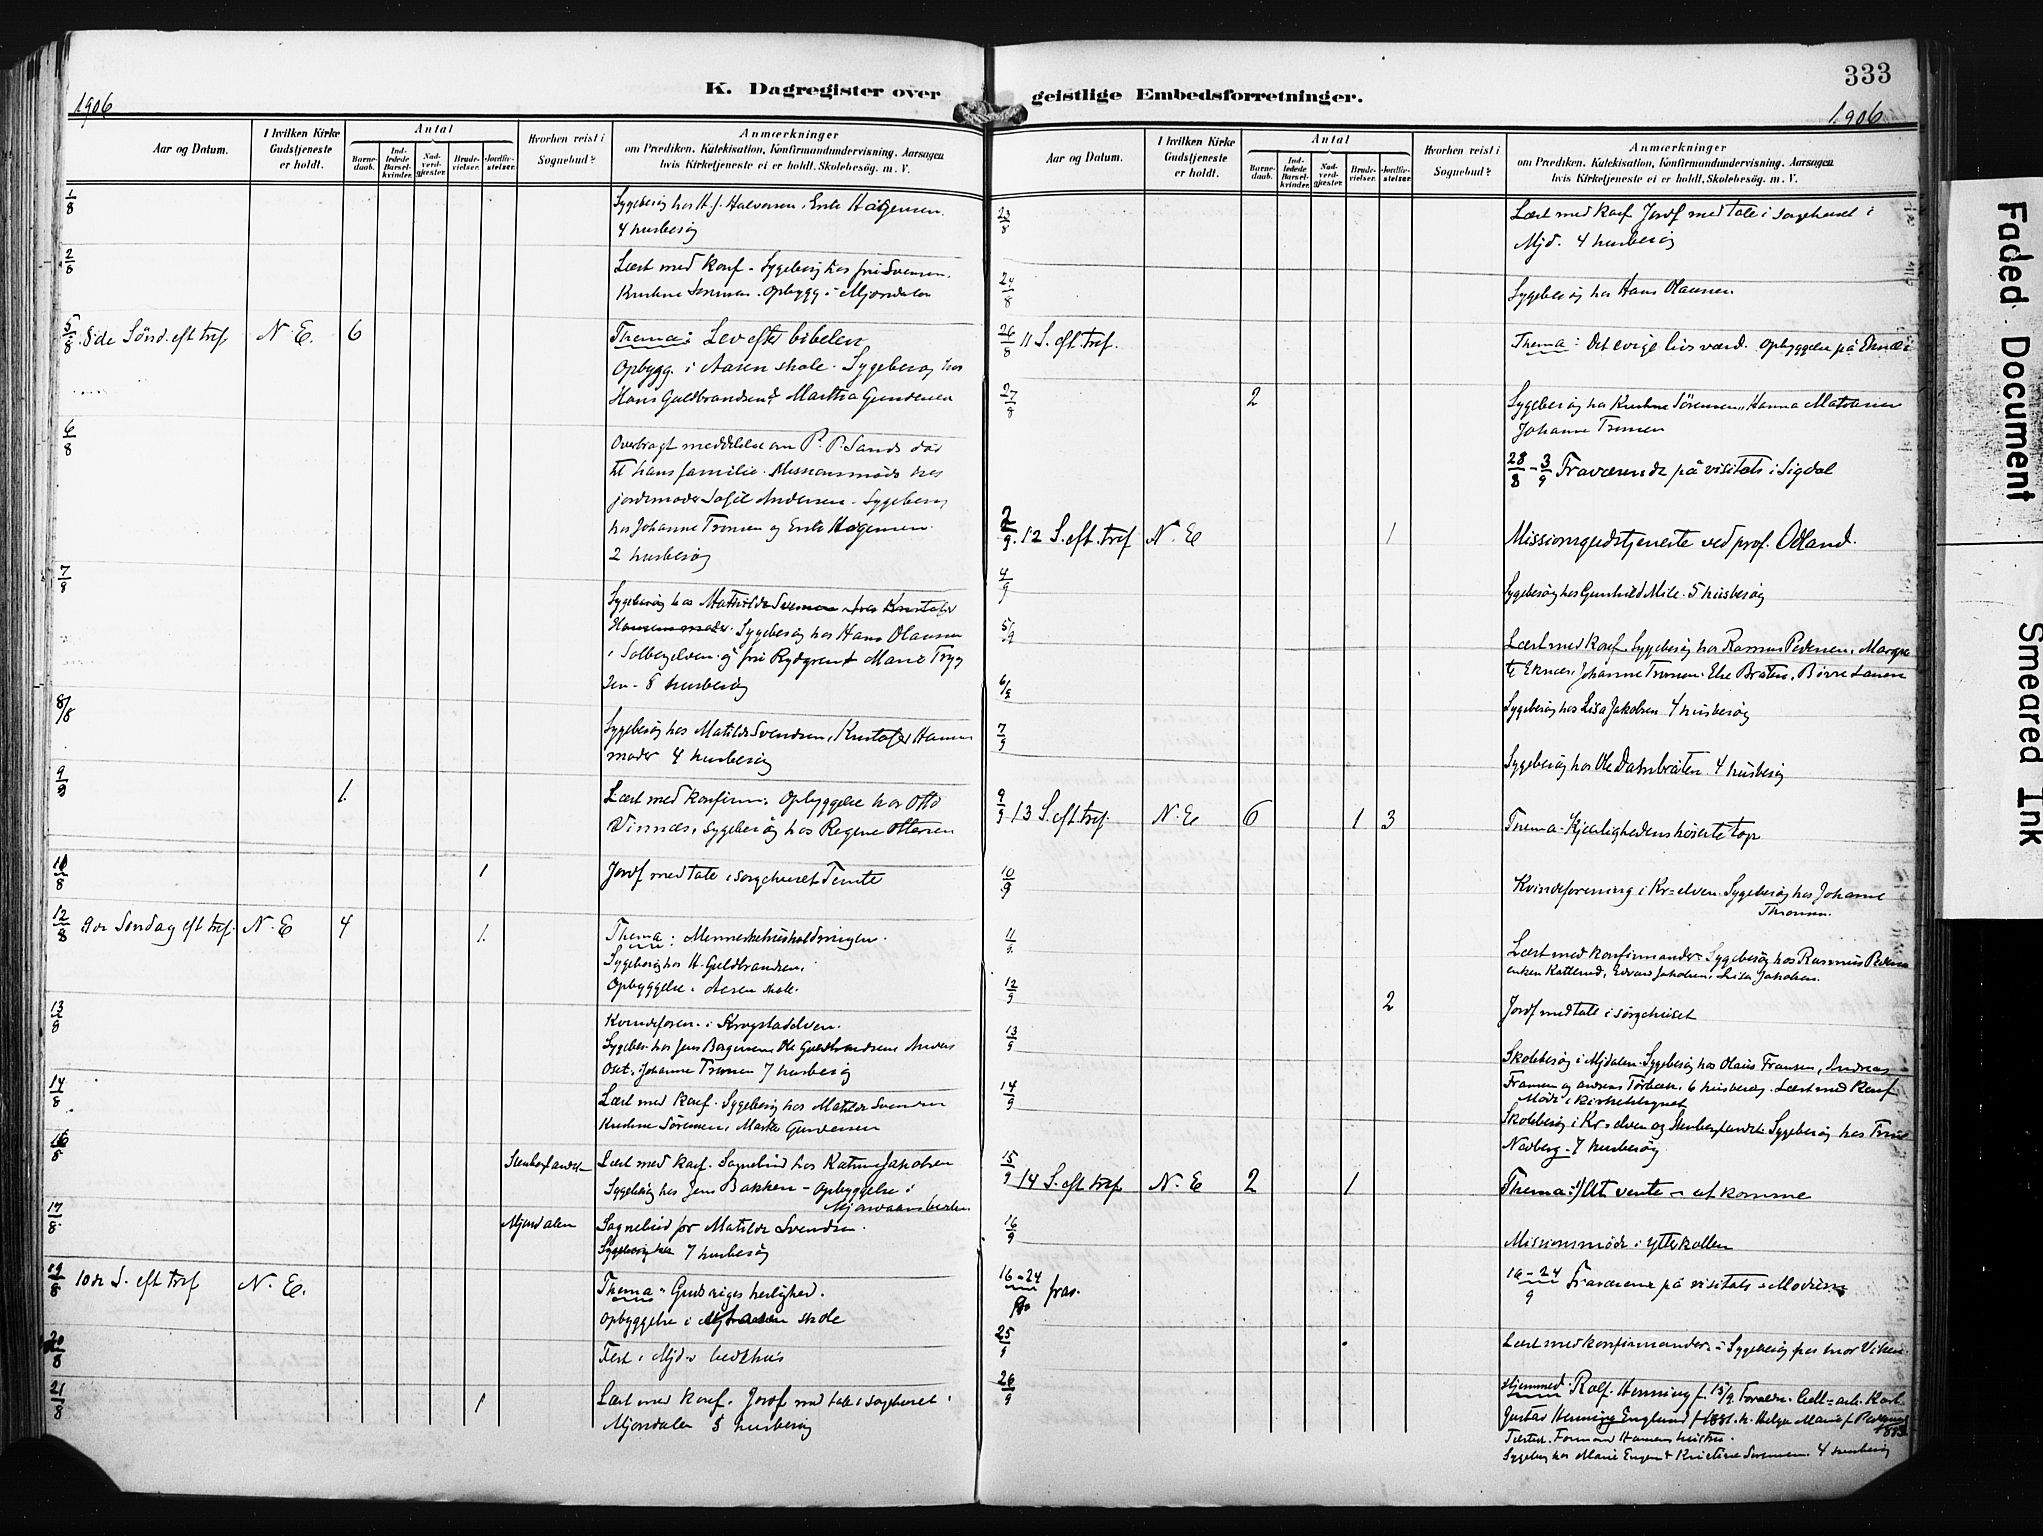 333
K. Dagregister over geistlige Embedsforretninger.
1906
1906
Aar og Datum.
I hvilken Kirke Gudstjeneste er holdt.
Antal
Barnedaab.
Indledede Barselkvinder.
Nadverdgjester.
Brudevielser.
Jordfæstelser.
Hvorhen reist i Sognebud?
Anmærkninger
om Prædiken, Katekisation, Konfirmandundervisning, Aarsagen
hvis Kirketjeneste ei er holdt, Skolebesøg, m. V.
1/8 Sygebesøg hos H. J. Halvorsen,
4 husbesøg
2/8 Læst med konf. - Sygebesøg hos fru Svensen.
Opbygg. i Mjøndalen
5/8 8de Sønd. eft tref. N. E. 6 Thema: Lev efter bibelen
Opbygg. i Aasen skole. Sygebesøg hos
Hans Guldbrandsen & Martha Gundersen
6/8 Overbragt meddelelse om P. P. Sands død
til hans familie. Missionsmøde hos
jordemoder Andersen. Sygebesøg
hos Johanne Tronsen og
2 husbesøg
7/8 Sygebesøg hos Mathilde Svensen
Sygebesøg hos Hans Olausen
i Solbergelven og fru Rydgren & Marie Tryg
sen - 8 husbesøg
8/8 Sygebesøg hos Matilde Svendsen, Kristofer Hansens
moder 4 husbesøg
9/8 1. Læst med konfirm. Opbyggelse hos Otto
Vinnæs, sygebesøg hos Regine Ottersen
10/8 1 Jordf med tale i sørgehuset Temte
12/8 9de Søndag eft tref. N. E 4 1. Thema: Menneskehusholdningen.
Sygebesøg hos H. Guldbrandsen.
Opbyggelse i Aasen skole.
13/8 Kvindeforen. i Krogstadelven.
Sygebes. hos Jens Borgersen Ole Guldbrandsen Anders
Johanne Tronsen 7 husbesøg
14/8 Læst med konf. Sygebesøg hos Matilde Svendsen
Kristine Sørensen, Marthe Gundersen
16/8 Stenbergandet Læst med konf. Sognebud hos Katrine Jakobsen
Sygebesøg hos Jens Bakken - Opbyggelse i
17/8 Mjøndalen Sognebud for Matilde Svendsen.
7 husbesøg
19/8 10de S. eft tref N. E. Thema: Guds riges herlighed.
Opbyggelse i skole
20/8 Fest i Mjd. bedehus
21/8 1 Læst med konf. Jordf med tale i sørgehuset i
Mjøndalen 5 husbesøg
Aar og Datum.
I hvilken Kirke Gudstjeneste er holdt.
Antal
Barnedaab.
Indledede Barselkvinder.
Nadverdgjester.
Brudevielser.
Jordfæstelser.
Hvorhen reist i Sognebud?
Anmærkninger
om Prædiken, Katekisation, Konfirmandundervisning, Aarsagen
hvis Kirketjeneste ei er holdt, Skolebesøg, m. V.
23/8 Læst med konf Jordf med tale i sørgehuset i
Mjd. 4 husbesøg
24/8 Sygebesøg hos Hans Olausen
26/8 11 S. eft. tref. Thema: Det evige livs værd. Opbyggelse på Eknæs
27/8 2 Sygebesøg hos Kristine Sørensen, Hanna Mathisen
Johanne Tronsen
28/8 - 3/9 Fraværende på visitats i Sigdal
2/9 12 S. eft. tref N. E 1 Missionsgudstjeneste ved prof. Odland.
4/9 Sygebesøg hos Gunhild Mile. 5 husbesøg
5/9 Læst med konf. Sygebesøg hos Rasmus Pedersen, Margre
te Eknæs, Johanne Tronsen. Else Bråten, Børre Larsen
6/9 Sygebesøg hos Lisa Jakobsen 4 husbesøg
7/9 Sygebesøg hos Ole Dambråten. 4 husbesøg
9/9 13 S. eft. tref. N. E 6 1 3 Thema: Kjærlighedens høieste top
10/9 Kvindeforening i Kr-elven. Sygebesøg hos Johanne
Thronsen.
11/9 Læst med konfirmander. Sygebesøg hos Rasmus Pedersen
enken Kolterud, Edvard Jakobsen, Lisa Jakobsen.
12/9 2 Jordf med tale i sørgehuset
13/9 Skolebesøg i Mjdalen. Sygebesøg hos Olaus Fransen, Andreas
Fransen og Andreas Torbæk. 6 husbesøg. Læst med konf
Møde i kirketilsynet
14/9 Skolebesøg i Kr-elven og Stenbergandet Sygebesøg hos
7 husbesøg.
15/9 14 S. eft. tref. N. E 2 1 Thema: At vente - at komme
16/9 Missionsmøde i Ytterkollen
16-24/9 frav. 16-24/9 Fraværende på visitats i Modum
25/9 Læst med konfirmander - Sygebesøg hos mor Viken.
26/9 Hjemmed. Rolf. Henning f. 15/9 Foreldre: Cell=arb. Karl
Gustav Henning Englund f 1881. h. Helga Marie f. Pedersen
1883
Sygebesøg hos Marie Engen & Kristine Sørensen. 4 husbesøg
Faded Document
Smeared Ink